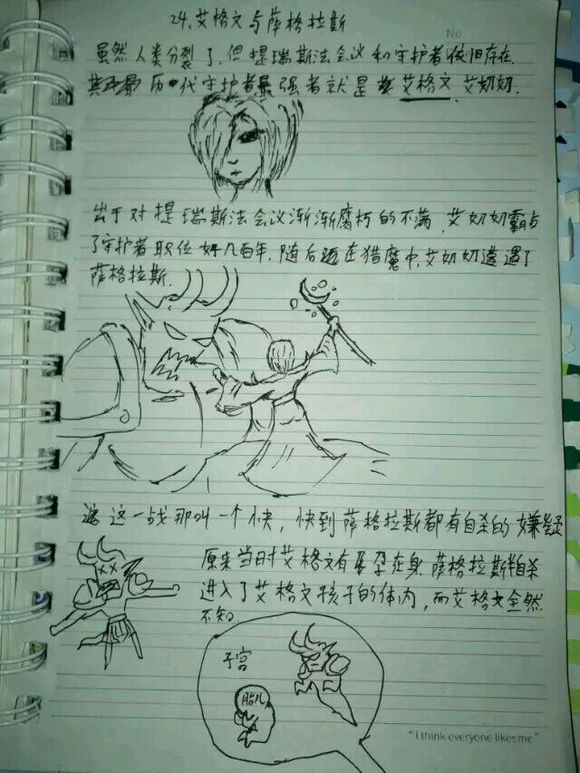 24.艾格文与萨格拉斯
No
虽然人类分裂了,但提瑞斯法会议和守护者依旧存在,
历代守护者最强者就是艾格文,艾奶奶.
出于对提瑞斯法会议渐渐腐朽的不满,艾奶奶霸占
了守护者职位好几百年.随后在猎魔中,艾奶奶遭遇了
萨格拉斯.
这一战那叫一个快,快到萨格拉斯都有自杀的嫌疑
原来当时艾格文有孕在身,萨格拉斯自杀
进入了艾格文孩子的体内,而艾格文全然
不知.
子宫
胎儿
"I think everyone likes me"